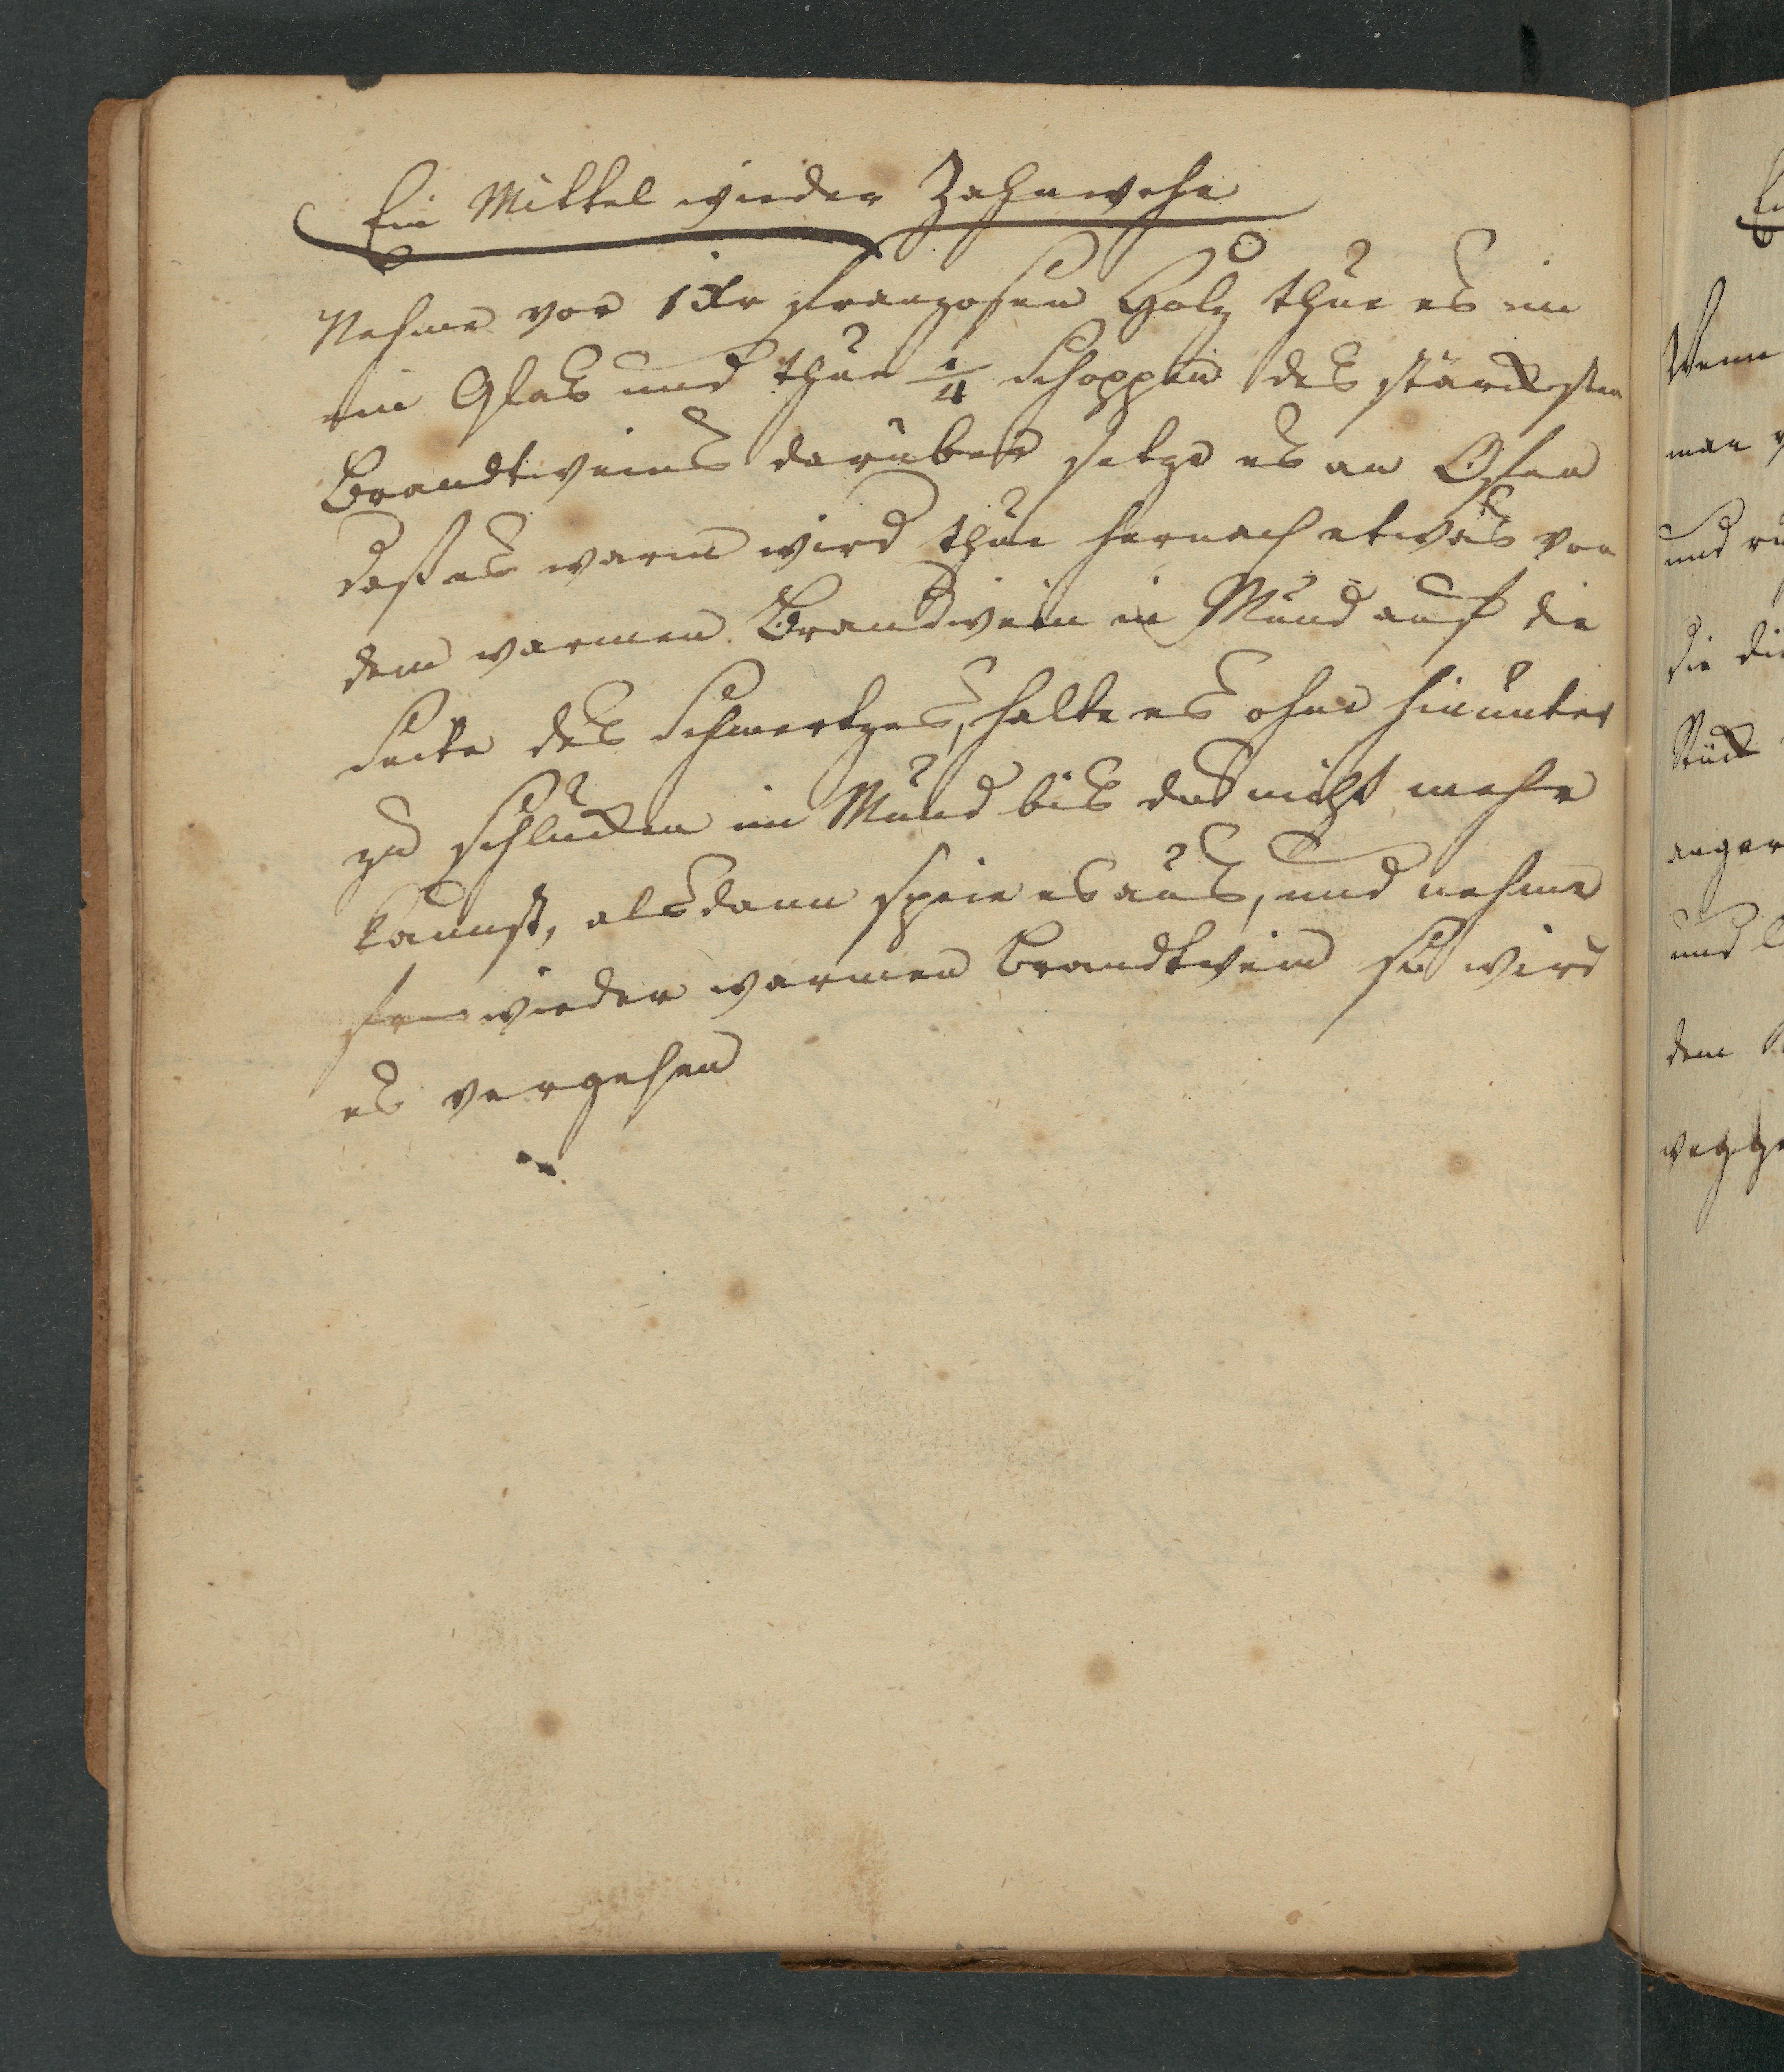 Ein Mittel wieder Zahnwehe
Nehme vor 1 Xr Franzosen Holz thue es in
ein Glas und thue 1/4 Schoppen des stärcksten
Brandtweins darüber setze es an Ofen
daß es warm wird thue hernach etwas von
dem warmen Brandwein in Mund auf die
Seite des Schmertzes, halte es ohne hinunter
zu schlucken im Mund bis du nicht mehr
kannst, alsdann speie es aus, und nehme
wieder warmen Brandtwein so wird
es vergehen
Wenn
man
und
die die
Stück
und
dem